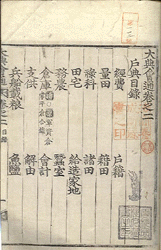 大典會通卷之二
戶典目錄
經費 戶籍
量田 籍田
祿科 諸田
田宅 給造家地
務農 蠶室
倉庫 會計
支供 解由
兵船載粮 魚鹽